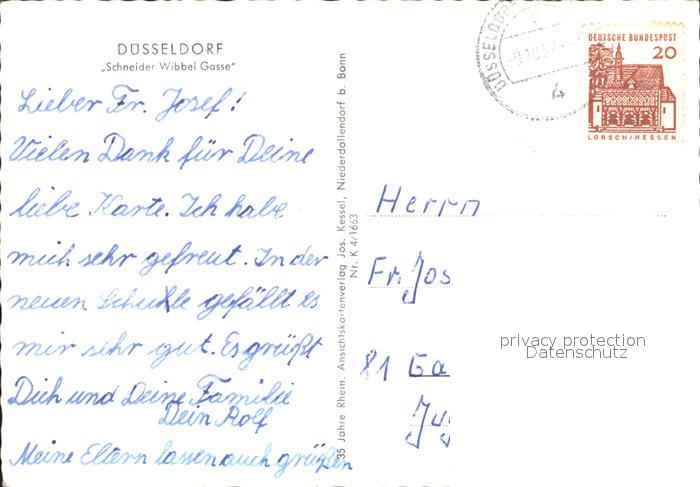 DÜSSELDORF
„Schneider Wibbel Gasse"
Lieber Fr. Josef!
Vielen Dank für Deine
liebe Karte. Ich habe
mich sehr gefreut. In der
neuen Schule gefällt es
mir sehr gut. Es grüßt
Dich und Deine Familie
Dein Rolf
Meine Eltern lassen auch grüßen
35 Jahre Rhein. Ansichtskartenverlag Jos. Kessel, Niederdollendorf b. Bonn
Nr. K 4/1663
DÜSSELDORF
4
DEUTSCHE BUNDESPOST
20
LORSCH/HESSEN
Herrn
Fr. Jos
81 Ga
privacy protection
Datenschutz